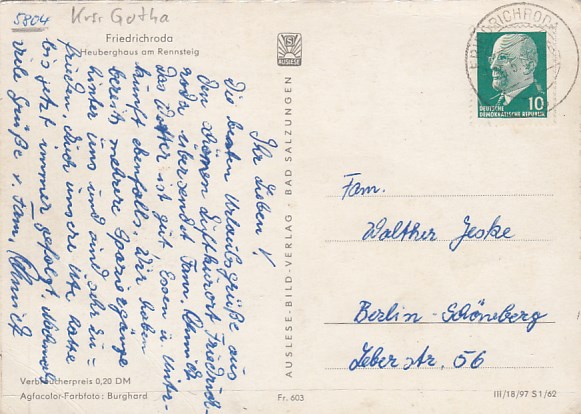 5804
Krs. Gotha
Friedrichroda
Heuberghaus am Rennsteig
AUSLESE
Ihr Lieben!
Die besten Urlaubsgrüße aus
dem schönen Luftkurort Friedrich-
roda übersendet Fam. Schmidt
das Wetter ist gut, Essen u. Unter-
kunft ebenfalls. Wir haben
bereits mehrere Spaziergänge
hinter uns und sind sehr zu=
frieden. Auch unsere Ute hatte
bis jetzt immer gefolgt. Nochmals
viele Grüße v. Fam. Schmidt
AUSLESE-BILD-VERLAG · BAD SALZUNGEN
FRIEDRICHRODA
10
DEUTSCHE
DEMOKRATISCHE REPUBLIK
Fam.
Walther Jeske
Berlin-Schöneberg
Feber str. 56
Verbraucherpreis 0,20 DM
Agfacolor-Farbfoto: Burghard
Fr. 603
III/18/97 S 1/62